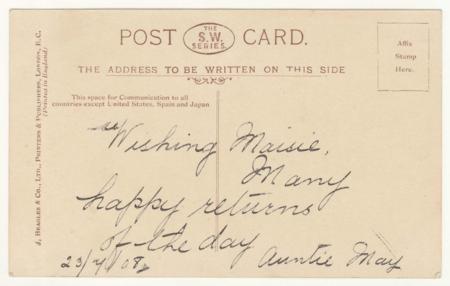 POST THE S.W. SERIES. CARD.
THE ADDRESS TO BE WRITTEN ON THIS SIDE
Affix
Stamp
Here.
This space for Communication to all
countries except United States, Spain and Japan
J. BEAGLES & CO., LTD., PRINTERS & PUBLISHERS, LONDON, E.C.
(Printed in England)
Wishing Maisie,
Many
happy returns
of the day
23/4/08
Auntie May